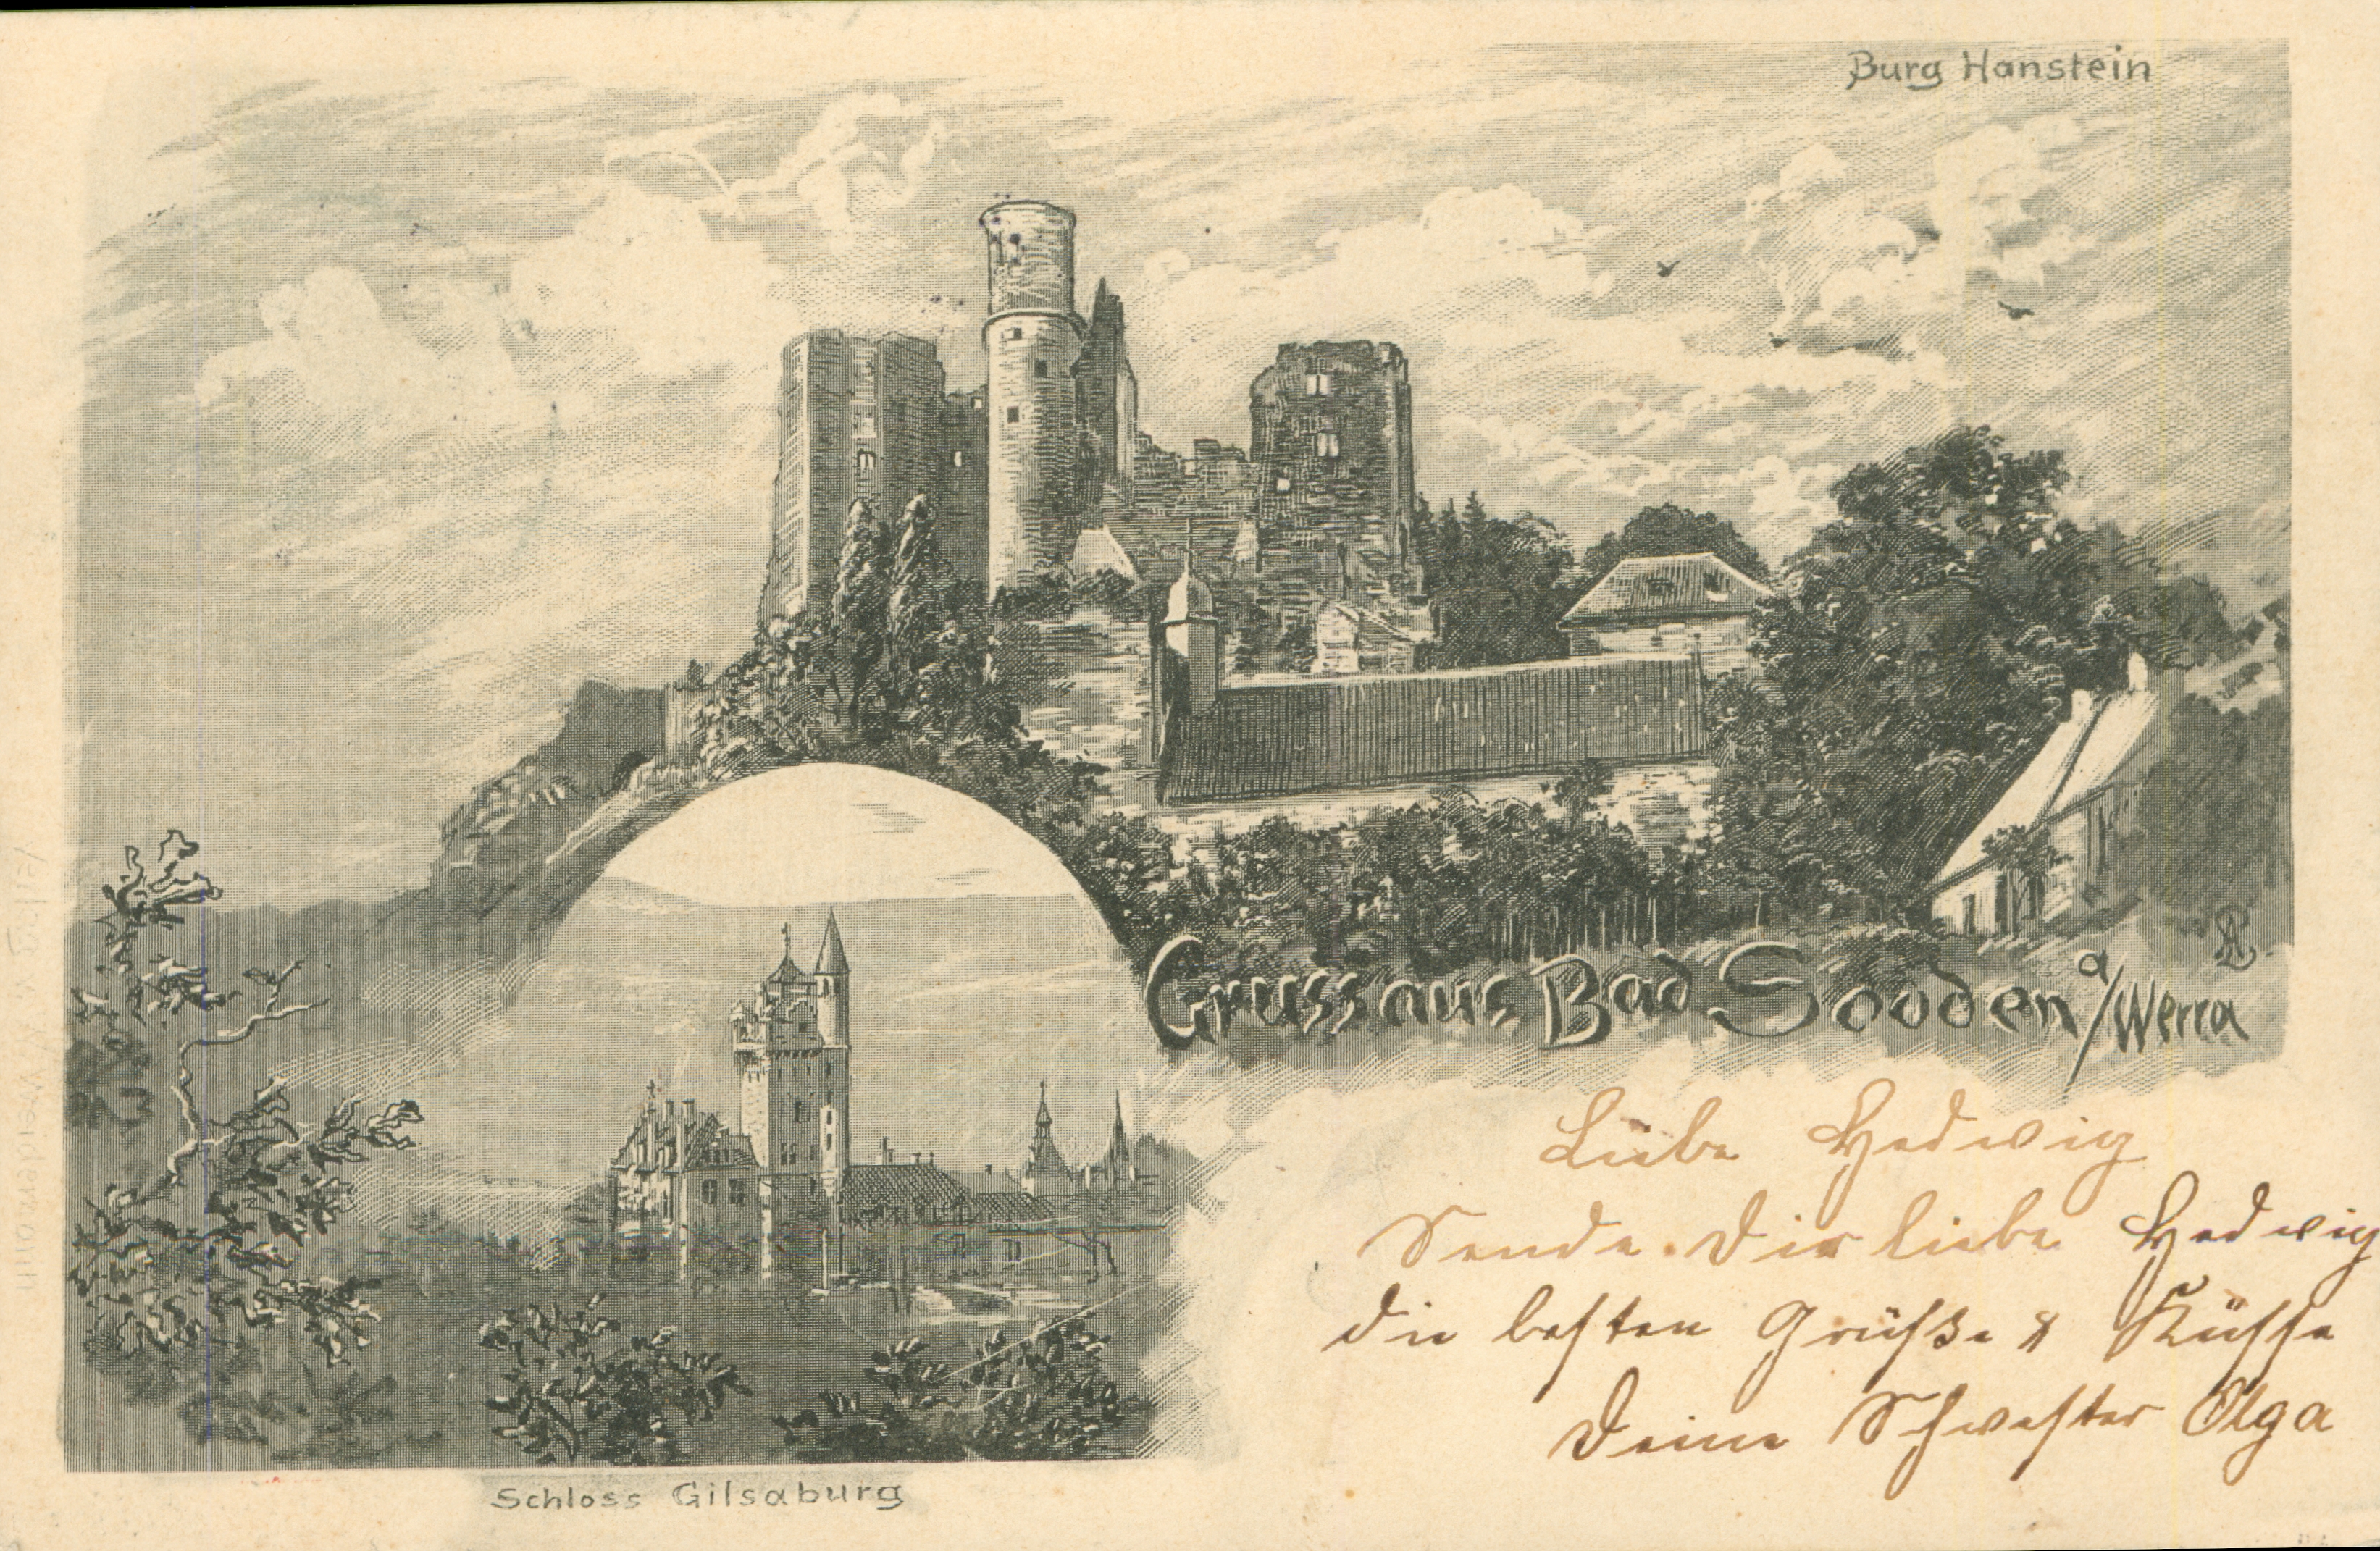 Burg Hanstein
Gruss aus Bad Sooden a/Werra
Liebe Hedwig
Sende Dir liebe Hedwig
die besten Grüße & Küsse
Deine Schwester Olga
Schloss Gilsaburg